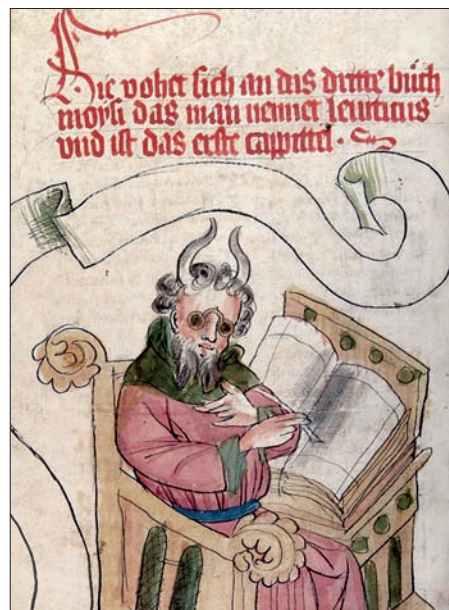 Hie vohet sich an das dritte büch
moysi das man nennet leuiticus
vnd ist das erste cappittel.